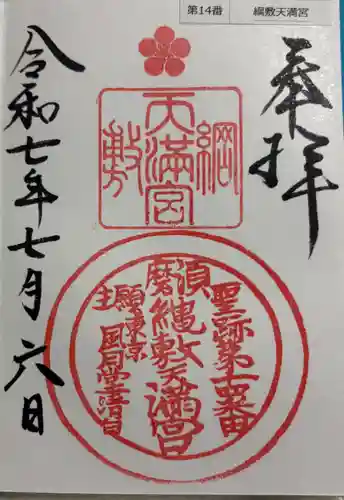 第14番 綱敷天満宮
奉拝
綱敷
天満宮
聖跡第十四番
須磨綱敷天満宮
願主
東京
令和七年七月六日